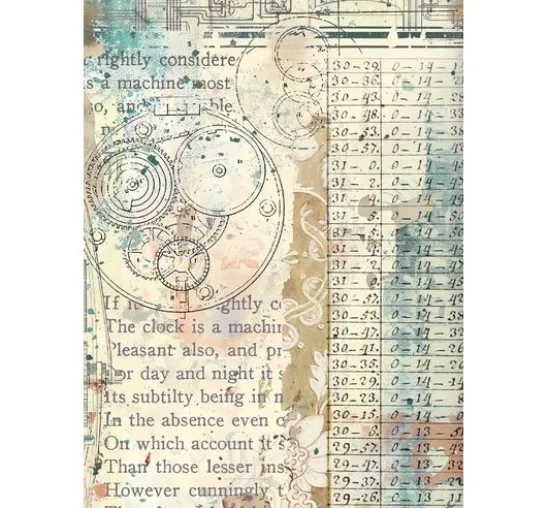 rightly considere
s a machine most
so, an ble
If it ghtly co
The clock is a machin
Pleasant also, and pr
For day and night it s
Its subtilty being in m
In the absence even o
On which account it's
Than those lesser ins
However cunningly t
30-29. 0-14-1
30-36. 0-14-2
30-43. 0-14-28
30-48. 0-14-33
30-53. 0-14-38
30-57. 0-14-
31-0. 0-14-
31-2. 0-14-
31-4. 0-14-49
31-5. 0-14-50
31-5. 0-14-
31-4. 0-14-
31-2. 0-14-47
31-0. 0-14-
30-57. 0-14-42
30-53. 0-14-38
30-47. 0-14-32
30-41. 0-14-26
30-35. 0-14-20
30-29. 0-14-14
30-23. 0-14-
30-15. 0-14-0
30-6. 0-13-5
29-57. 0-13-4
29-47. 0-13-3
29-37. 0-13-
29-26. 0-13-1